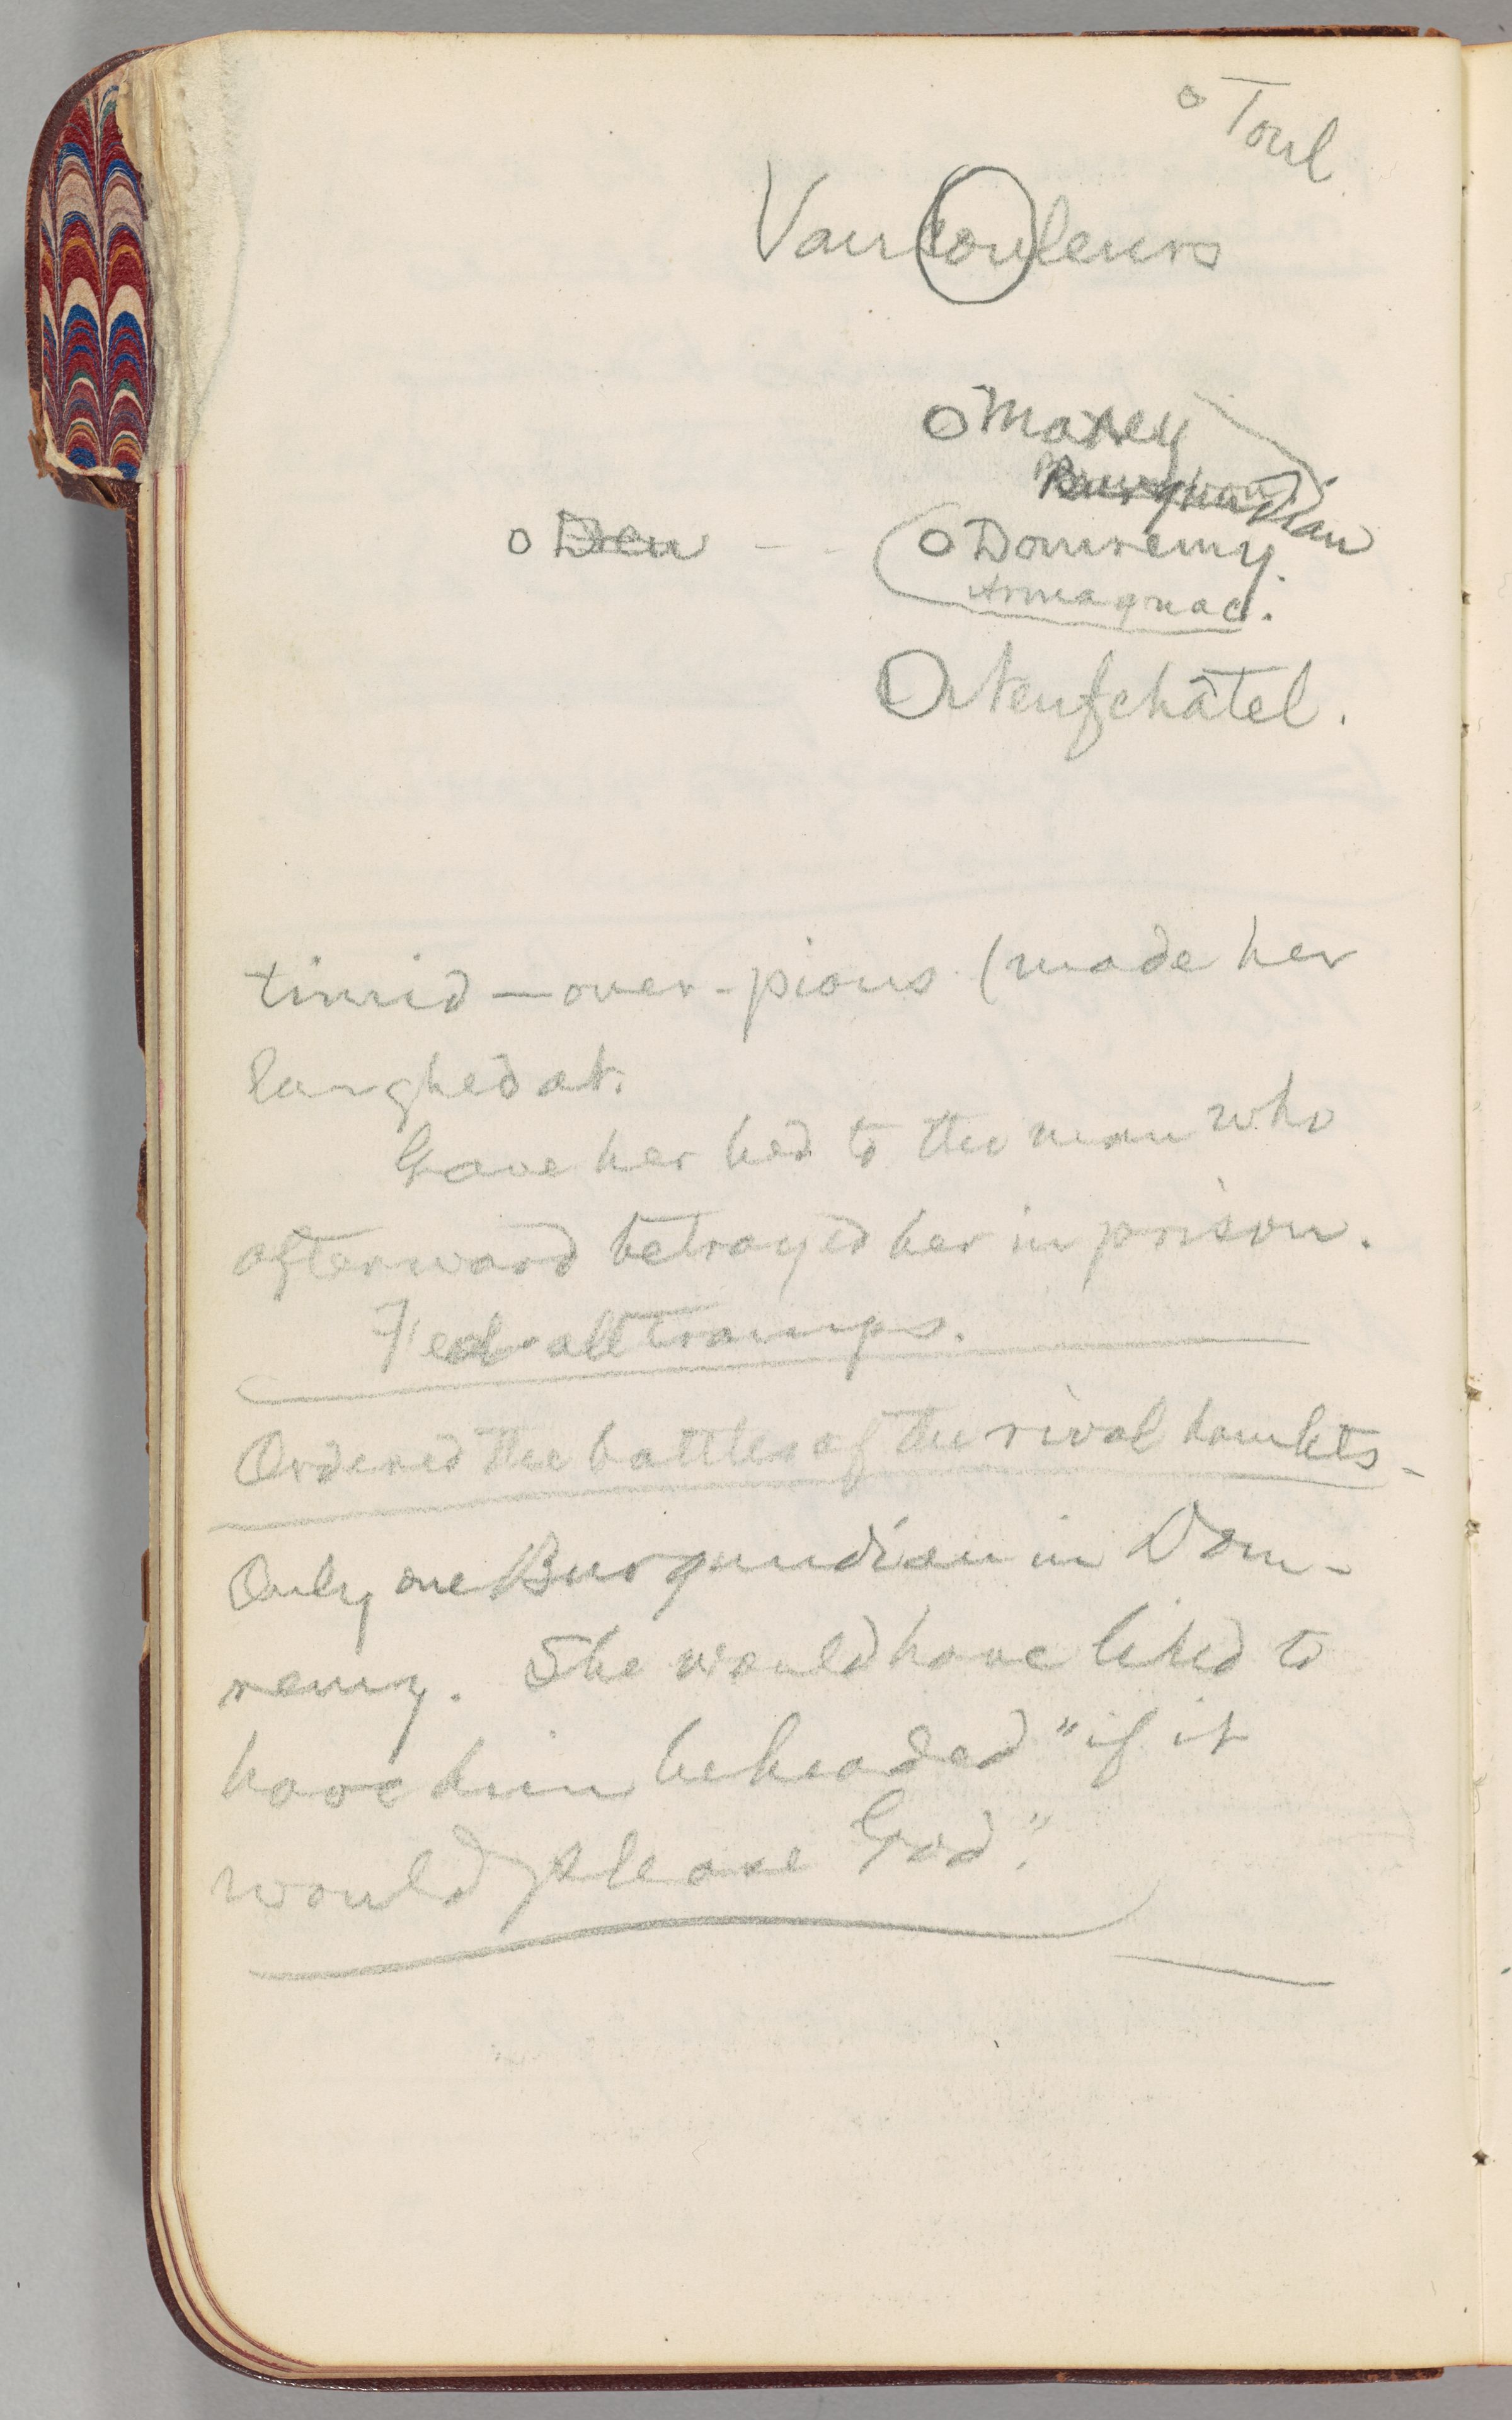 Toul
Vaucouleurs
Maxey
Burgundian
Domremy.
Armagnac.
Neufchâtel.
timid — over-pious (made her
laughed at.
Gave her bed to the man who
afterward betrayed her in prison.
Fed all tramps.
Ordered the battles of the rival hamlets-
Only one Burgundian in Dom-
remy. She would have liked to
have him beheaded "if it
would please God."